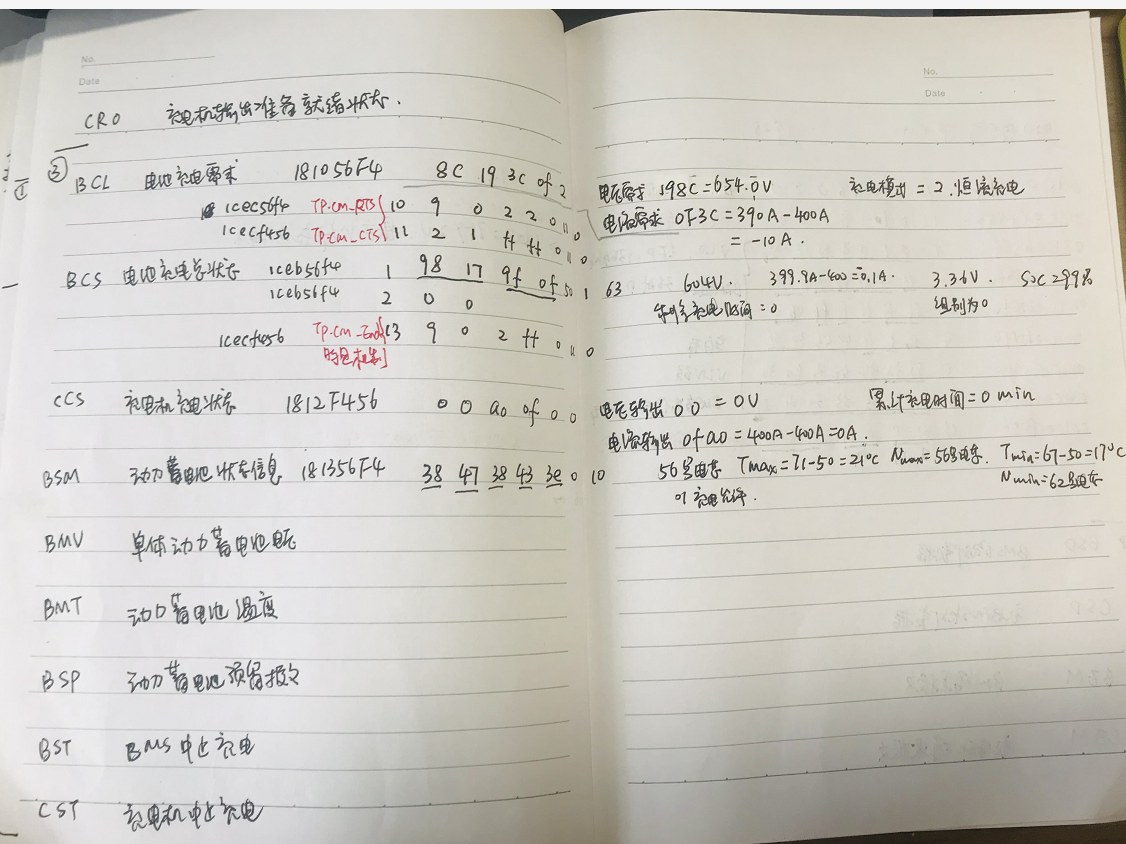 No.
Date
CRO 充电机输出准备就绪状态.
③
①
BCL 电池充电需求 181056F4 8C 19 3C 0f 2
1cec56f4 TP.CM_RTS 10 9 0 2 2 0 11 0
1cecf456 TP.CM_CTS 11 2 1 ff ff 0 11 0
BCS 电池充电总状态 1ceb56f4 1 98 17 9f 0f 50 1 63
1ceb56f4 2 0 0
1cecf456 TP.CM_End 13 9 0 2 ff 0 11 0
CCS 充电机充电状态 1812F456 0 0 a0 0f 0 0
BSM 动力蓄电池状态信息 181356F4 38 47 38 43 3e 0 10
BMV 单体动力蓄电池电压
BMT 动力蓄电池温度
BSP 动力蓄电池预留报文
BST BMS中止充电
CST 充电机中止充电
No.
Date
电压需求 198C=654.0V 充电模式=2.恒流充电
电流需求 0F3C=390A-400A
=-10A.
604V. 399.9A-400=0.1A. 3.36V. SOC=99%
剩余充电时间=0 组别为0
电压输出 0 0 =0V 累计充电时间=0 min
电流输出 0fa0=400A-400A=0A.
56号电芯 Tmax=71-50=21℃ Nmax=56号电芯. Tmin=67-50=17℃
01 充电允许. Nmin=62号电芯